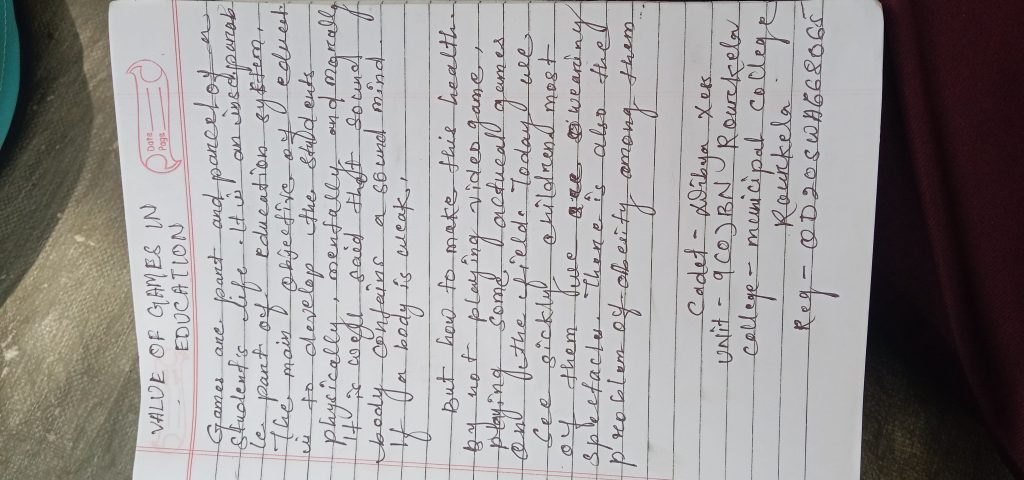 Date
Page
VALUE OF GAMES IN
EDUCATION
Games are part and parcel of a
student's life. It is an inseparab
le part of education system.
The main objective of educat
is to develop the students
physically, mentally and morally
It is well said that sound
body contains a sound mind
if a body is weak,
But how to make this health
by not playing video game,
playing some actucal games
on the field. Today we
see sickly children most
of them five are wearing
spectacles. There is also they
problem of obesity among them
Cadet - Xess
Unit - 9(O)BN Rourkela
college - municipal college
Rourkela
Reg - OD20SWA5668065